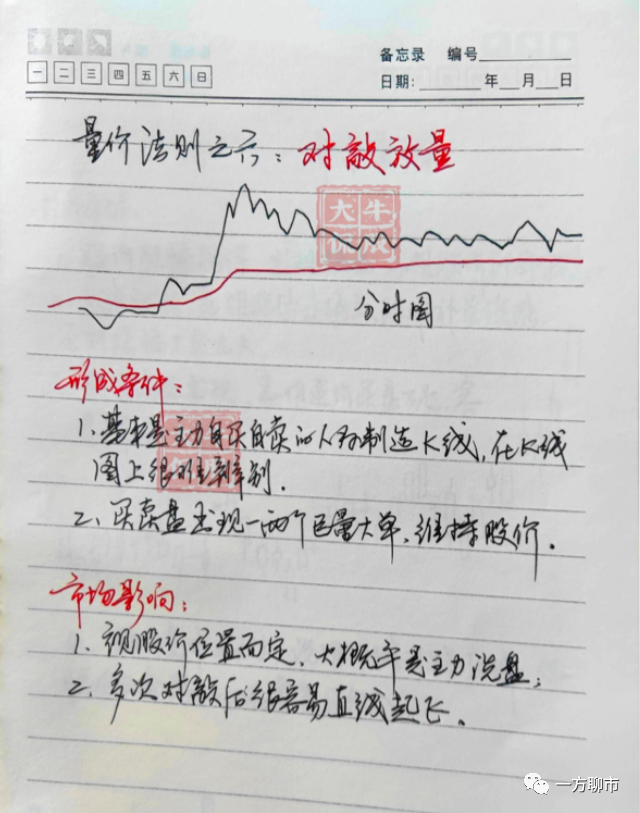 备忘录 编号
一 二 三 四 五 六 日
日期: 年 月 日
量价法则之六：对敲放量
大牛
分时图
形成条件：
1、基本是主力自买自卖的人为制造K线，在K线
图上很难辨别．
2、买卖盘出现一两个巨量大单，维持股价．
市场影响：
1、视股价位置而定，大概率是主力洗盘；
2、多次对敲后很容易直线起飞．
一方聊市